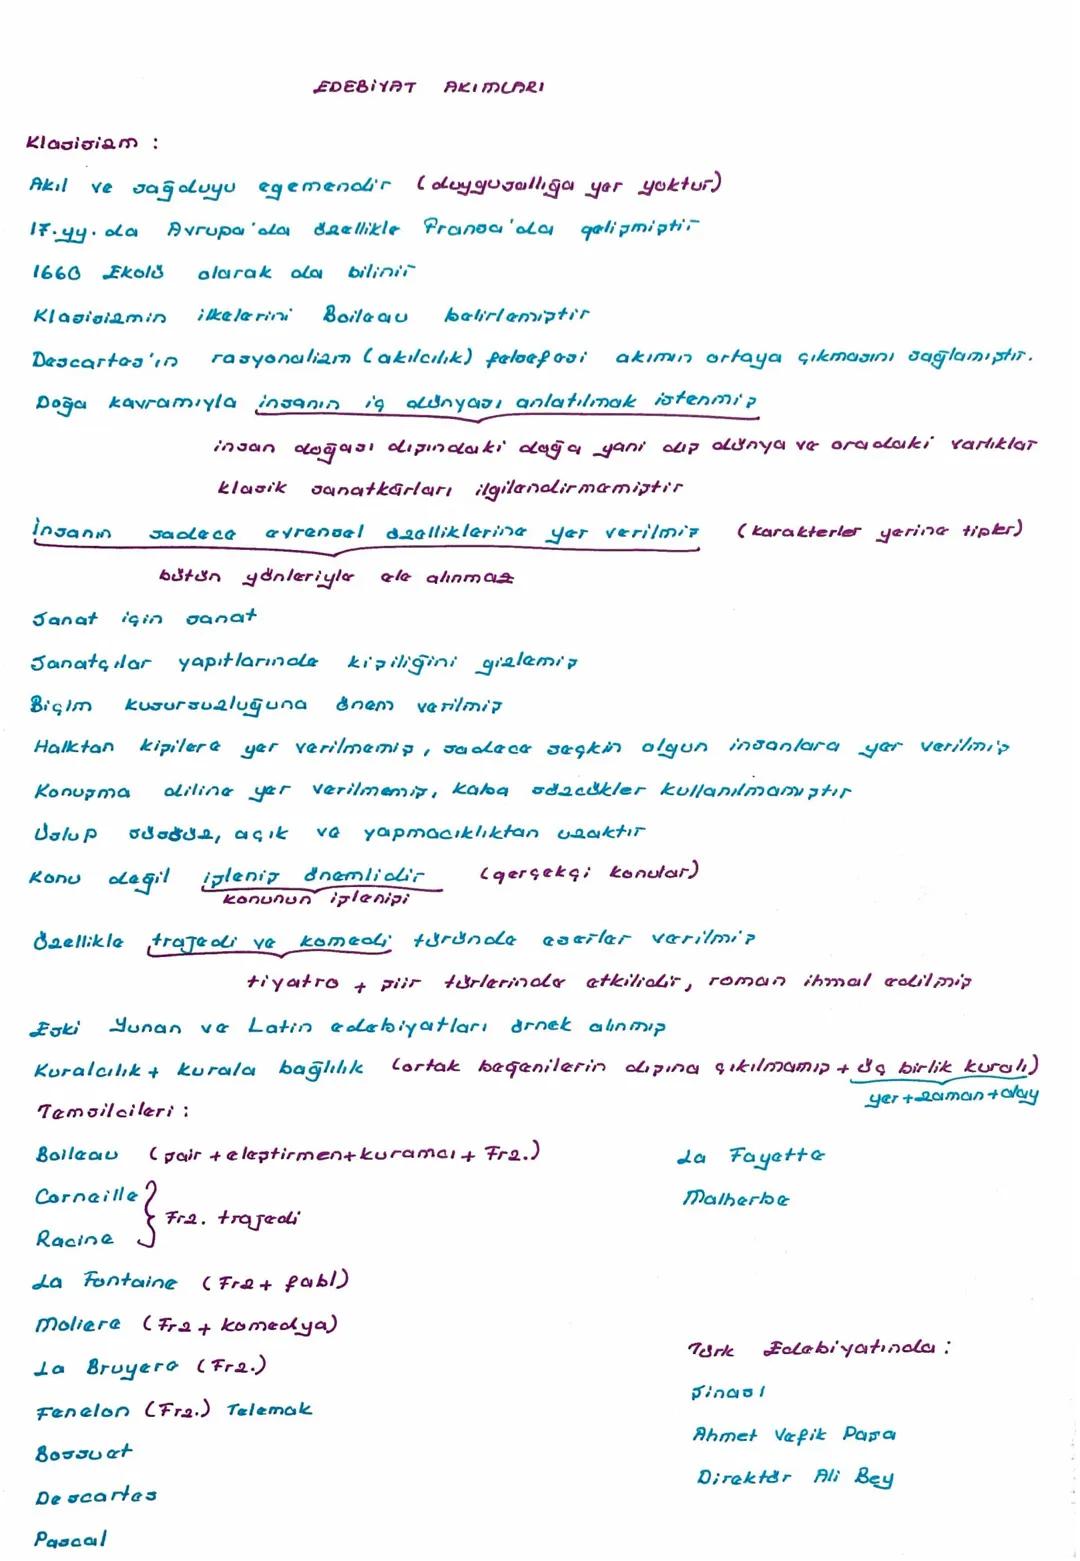 EDEBİYAT AKIMLARI
Klasisizm :
Akıl ve sağduyu egemendir (duygusallığa yer yoktur)
17.yy.da Avrupa'da özellikle Fransa'da gelişmiştir
1660 Ekolü olarak da bilinir
Klasisizmin ilkelerini Boileau belirlemiştir
Descartes'ın rasyonalizm (akılcılık) felsefesi akımın ortaya çıkmasını sağlamıştır.
Doğa kavramıyla insanın iç dünyası anlatılmak istenmiş
insan doğası dışındaki doğa yani dış dünya ve oradaki varlıklar
klasik sanatkârları ilgilendirmemiştir
İnsanın sadece evrensel özelliklerine yer verilmiş (karakterler yerine tipler)
bütün yönleriyle ele alınmaz
Sanat için sanat
Sanatçılar yapıtlarında kişiliğini gizlemiş
Biçim kusursuzluğuna önem verilmiş
Halktan kişilere yer verilmemiş, sadece seçkin olgun insanlara yer verilmiş
Konuşma diline yer verilmemiş, kaba sözcükler kullanılmamıştır
Üslup süssüz, açık ve yapmacıklıktan uzaktır
Konu değil işleniş önemlidir (gerçekçi konular)
konunun işlenişi
Özellikle trajedi ve komedi türünde eserler verilmiş
tiyatro + şiir türlerinde etkilidir, roman ihmal edilmiş
Eski Yunan ve Latin edebiyatları örnek alınmış
Kuralcılık + kurala bağlılık (ortak beğenilerin dışına çıkılmamış + üç birlik kuralı)
yer + zaman + olay
Temsilcileri :
Boileau (şair + eleştirmen + kuramcı + Frz.)
La Fayette
Corneille
Malherbe
Frz. trajedi
Racine
La Fontaine (Frz + fabl)
Moliere (Frz + komedya)
La Bruyere (Frz.)
Türk Edebiyatında :
Fenelon (Frz.) Telemak
Şinasi
Bossuet
Ahmet Vefik Paşa
Descartes
Direktör Ali Bey
Pascal